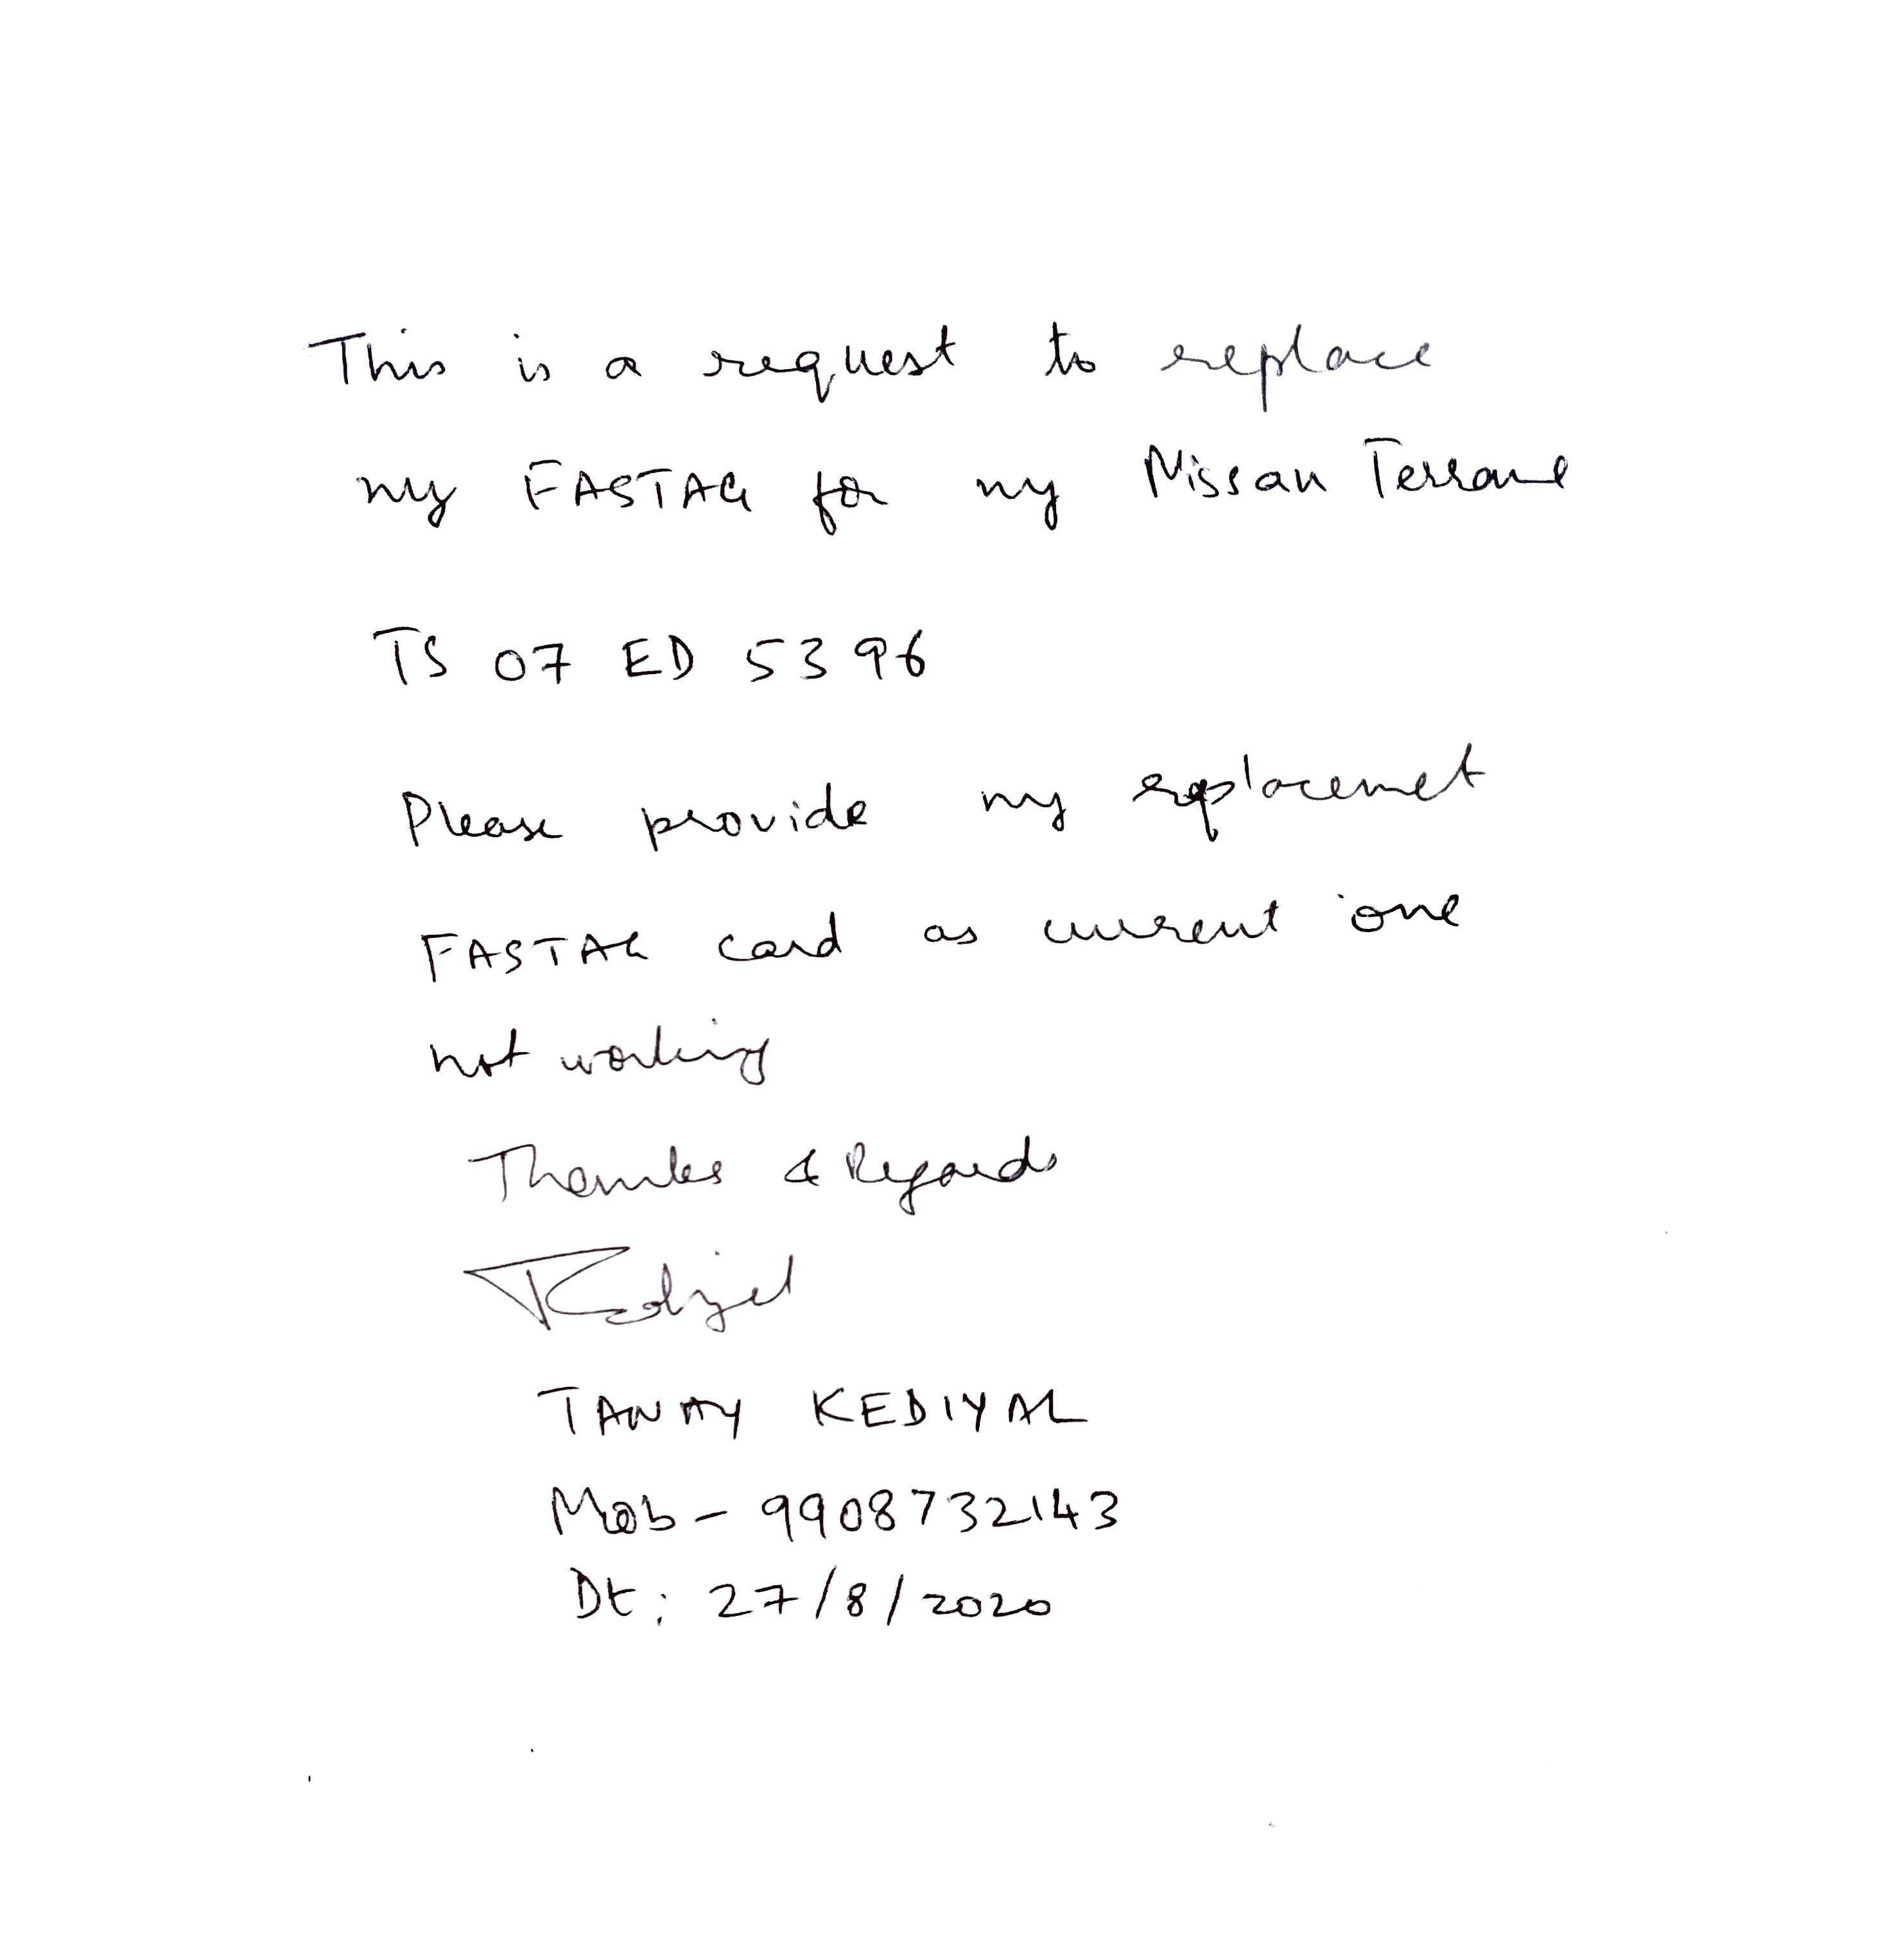 This is a request to replace
my FASTAG for my Nissan Terrano
TS 07 ED 5396
Please provide my replacemet
FASTAG card as current one
not working
Thanks & Regards
TANAY KEDIYAL
Mob - 9908732143
Dt: 27/8/2020